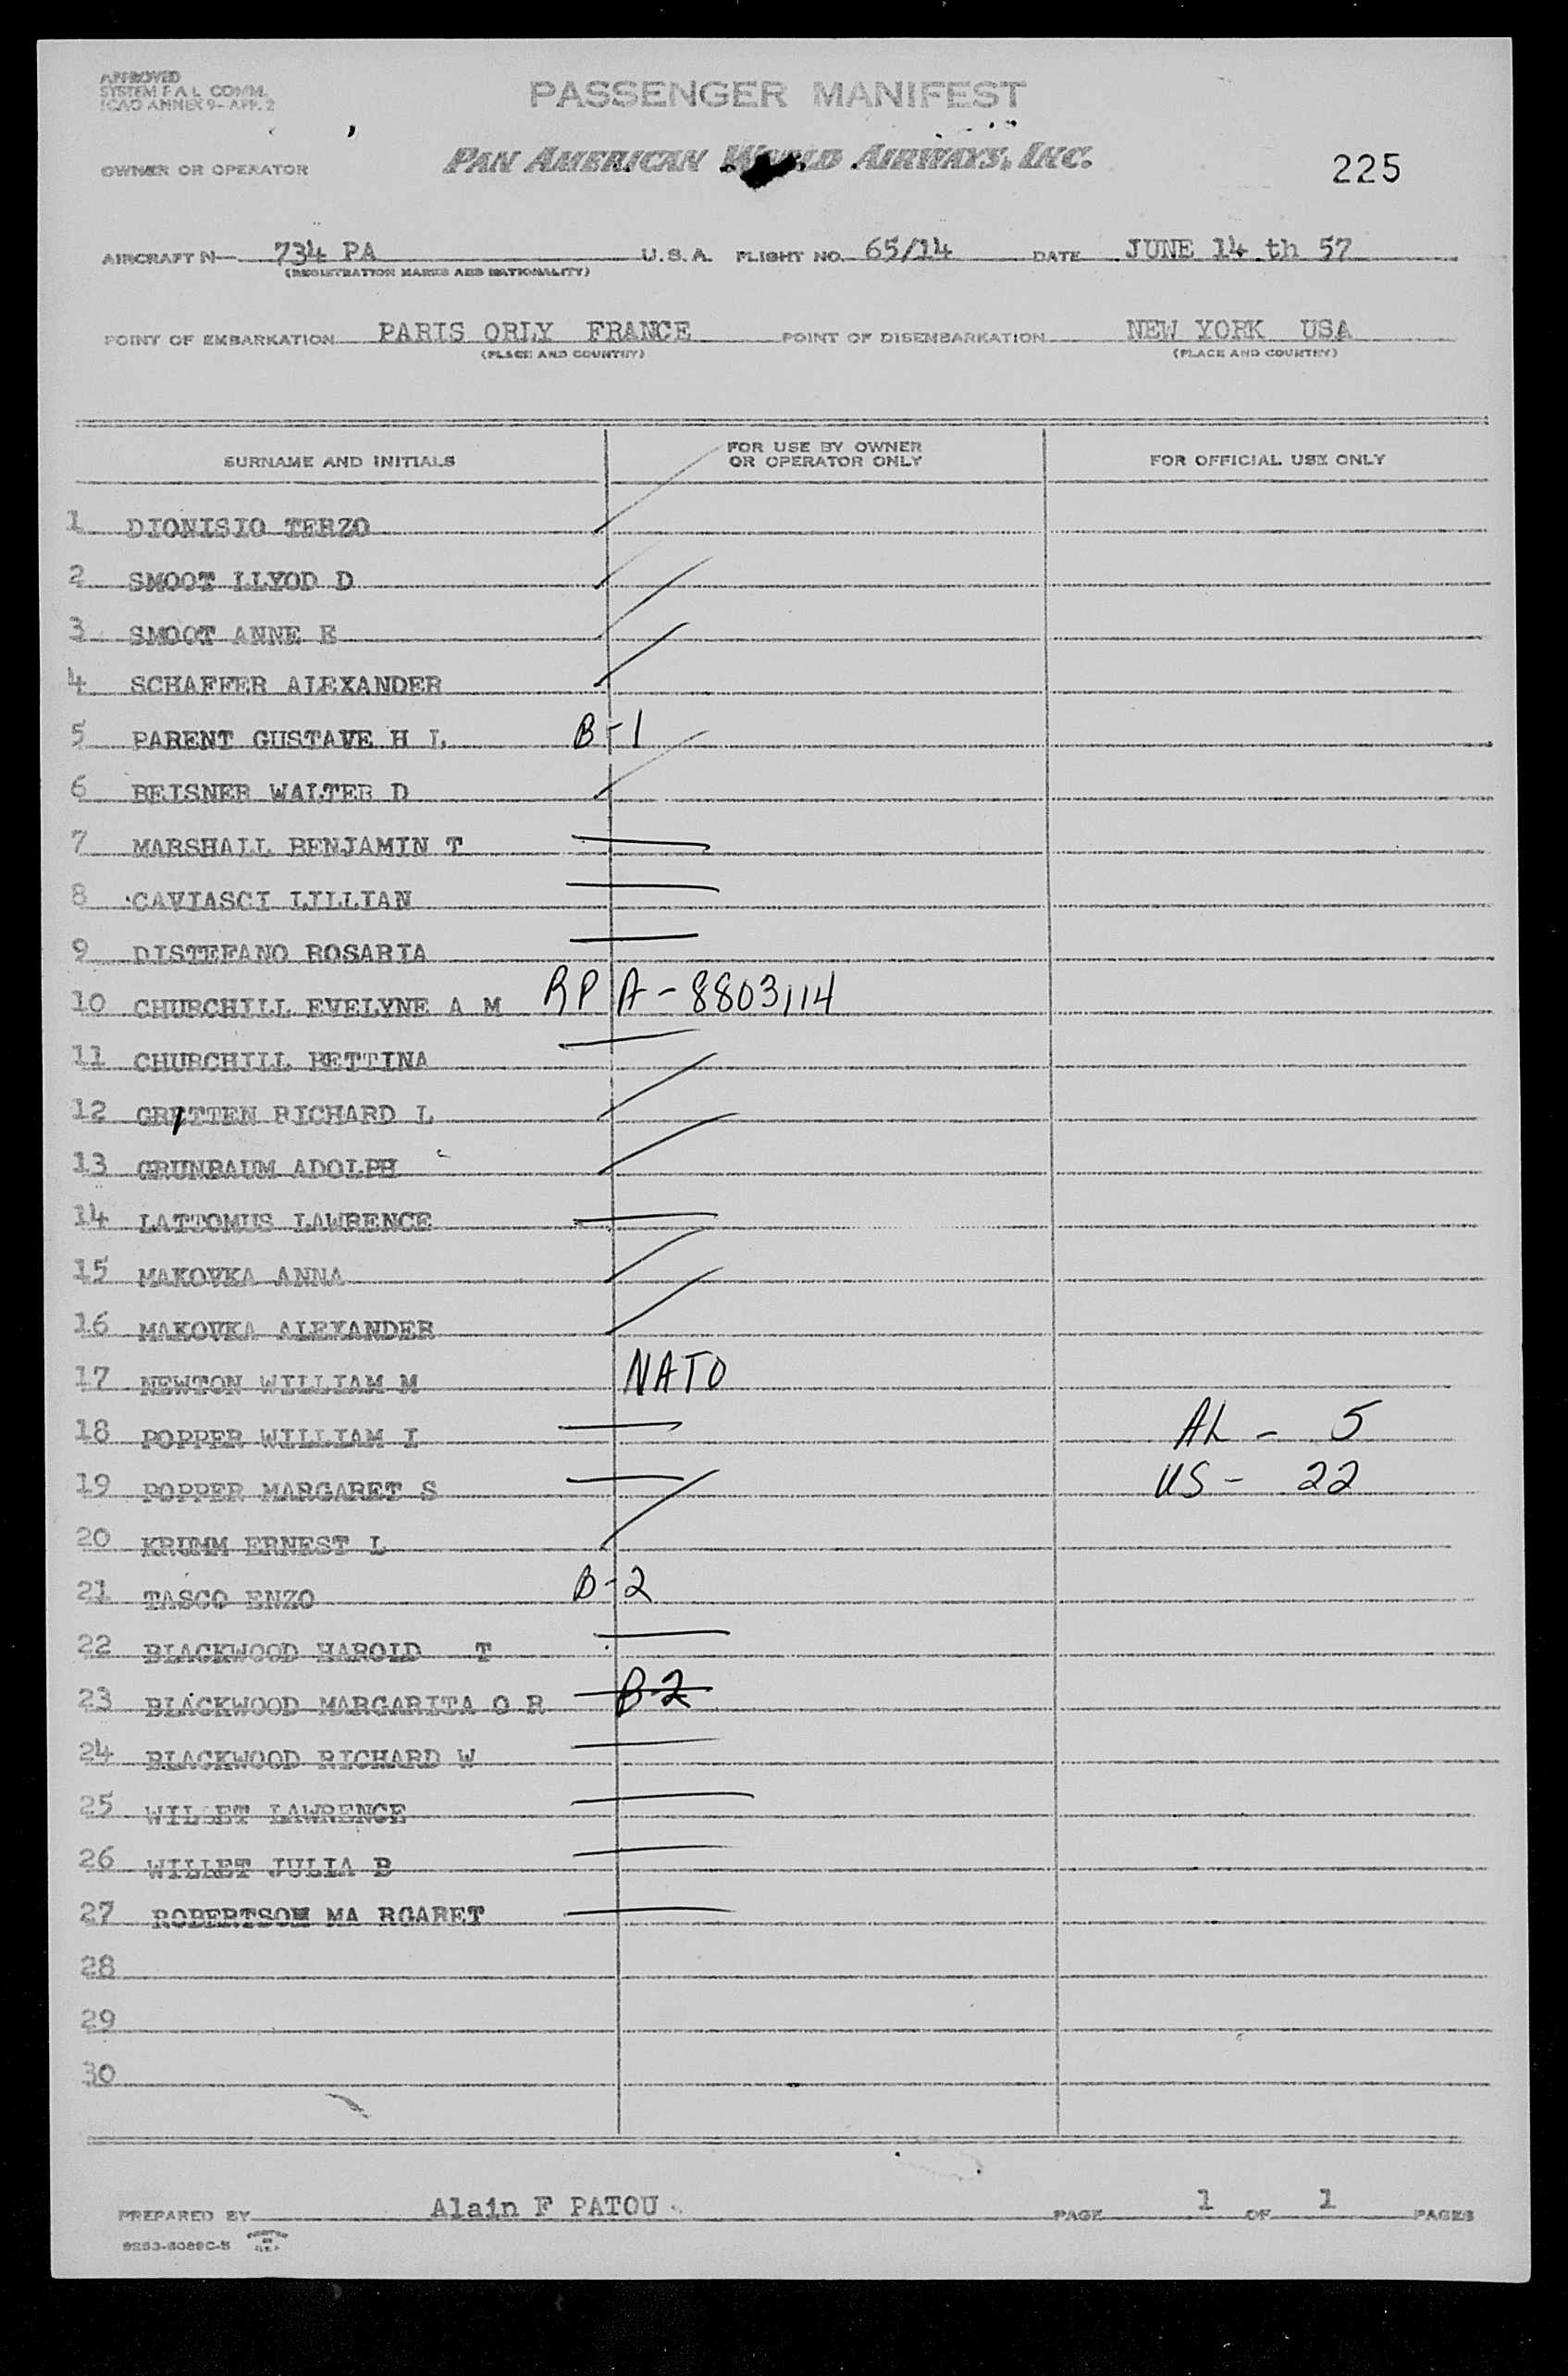 APPROVED
SYSTEM F A L COMM.
ICAO ANNEX 9-APP. 2
PASSENGER MANIFEST
OWNER OR OPERATOR PAN AMERICAN WORLD AIRWAYS, INC. 225
AIRCRAFT N 734 PA U.S.A. FLIGHT NO. 65/14 DATE JUNE 14 th 57
(REGISTRATION MARKS AND NATIONALITY)
POINT OF EMBARKATION PARIS ORLY FRANCE POINT OF DISEMBARKATION NEW YORK USA
(PLACE AND COUNTRY) (PLACE AND COUNTRY)
SURNAME AND INITIALS FOR USE BY OWNER OR OPERATOR ONLY FOR OFFICIAL USE ONLY
1 DIONISIO TERZO
2 SMOOT LLYOD D
3 SMOOT ANNE E
4 SCHAFFER ALEXANDER
5 PARENT GUSTAVE H L B-1
6 BEISNER WALTER D
7 MARSHALL BENJAMIN T
8 CAVIASCI LILLIAN
9 DISTEFANO ROSARIA
10 CHURCHILL EVELYNE A M RP A-8803114
11 CHURCHILL BETTINA
12 GRITTEN RICHARD L
13 GRUNBAUM ADOLPH
14 LATTOMUS LAWRENCE
15 MAKOVKA ANNA
16 MAKOVKA ALEXANDER
17 NEWTON WILLIAM M NATO
18 POPPER WILLIAM I AL - 5
19 POPPER MARGARET S US - 22
20 KRUMM ERNEST L
21 TASCO ENZO B-2
22 BLACKWOOD HAROLD T
23 BLACKWOOD MARGARITA O R B-2
24 BLACKWOOD RICHARD W
25 WILLET LAWRENCE
26 WILLET JULIA B
27 ROBERTSOM MA RGARET
28
29
30
PREPARED BY Alain F PATOU PAGE 1 OF 1 PAGES